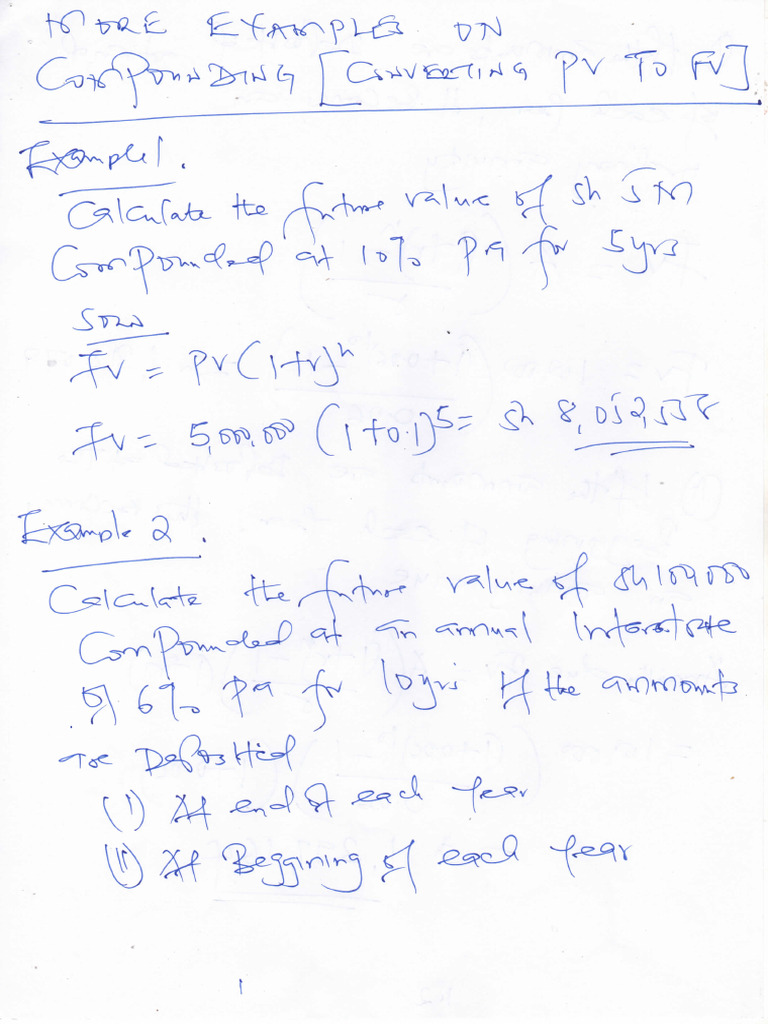 MORE EXAMPLES ON
COMPOUNDING [CONVERTING PV TO FV]
Example 1.
Calculate the future value of sh 5M
Compounded at 10% PA for 5yrs
Soln
FV = PV(1+r)^n
FV = 5,000,000 (1+0.1)^5 = sh 8,052,558
Example 2.
Calculate the future value of sh 100,000
Compounded at an annual Interest rate
of 6% PA for 10yrs If the ammounts
are Deposited
(i) At end of each year
(ii) At Beggining of each year
1